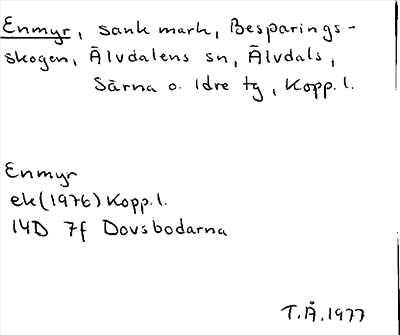 Enmyr, sank mark, Besparings-
skogen, Älvdalens sn, Älvdals,
Särna o. Idre tg, Kopp.l.
Enmyr
ek (1976) Kopp.l.
14D 7f Dovsbodarna
T.Å. 1977